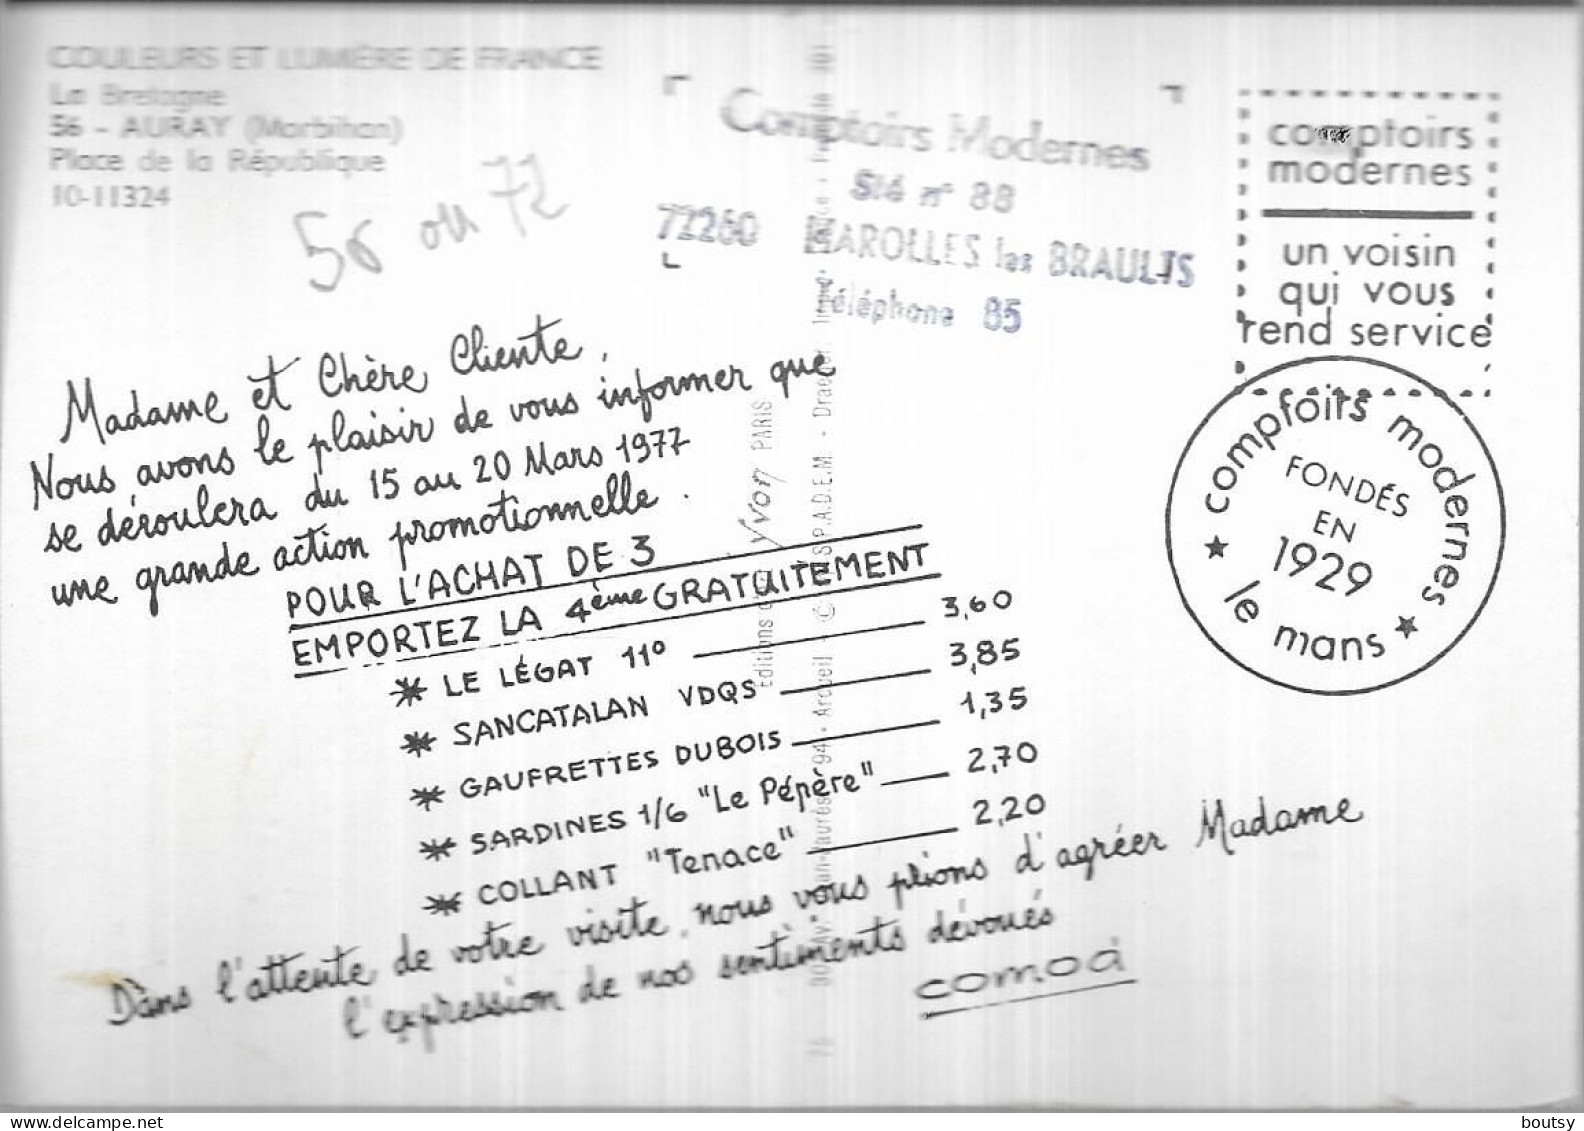 COULEURS ET LUMIÈRE DE FRANCE
La Bretagne
56 - AURAY (Morbihan)
Place de la République
10-11324
56 ou 72
Comptoirs Modernes
Sté n° 88
72260 MAROLLES les BRAULTS
Téléphone 85
comptoirs
modernes
un voisin
qui vous
rend service
comptoirs modernes
FONDÉS
EN
1929
★ le mans ★
Madame et Chère Cliente,
Nous avons le plaisir de vous informer que
se déroulera du 15 au 20 Mars 1977
une grande action promotionnelle.
POUR L'ACHAT DE 3
EMPORTEZ LA 4ème GRATUITEMENT
* LE LÉGAT 11° 3,60
* SANCATALAN VDQS 3,85
* GAUFRETTES DUBOIS 1,35
* SARDINES 1/6 "Le Pépère" 2,70
* COLLANT "Tenace" 2,20
Dans l'attente de votre visite, nous vous prions d'agréer Madame
l'expression de nos sentiments dévoués
comod
Editions d'Art Yvon PARIS
S.P.A.D.E.M. - Draeger
94 - Arcueil - ©
boutsy